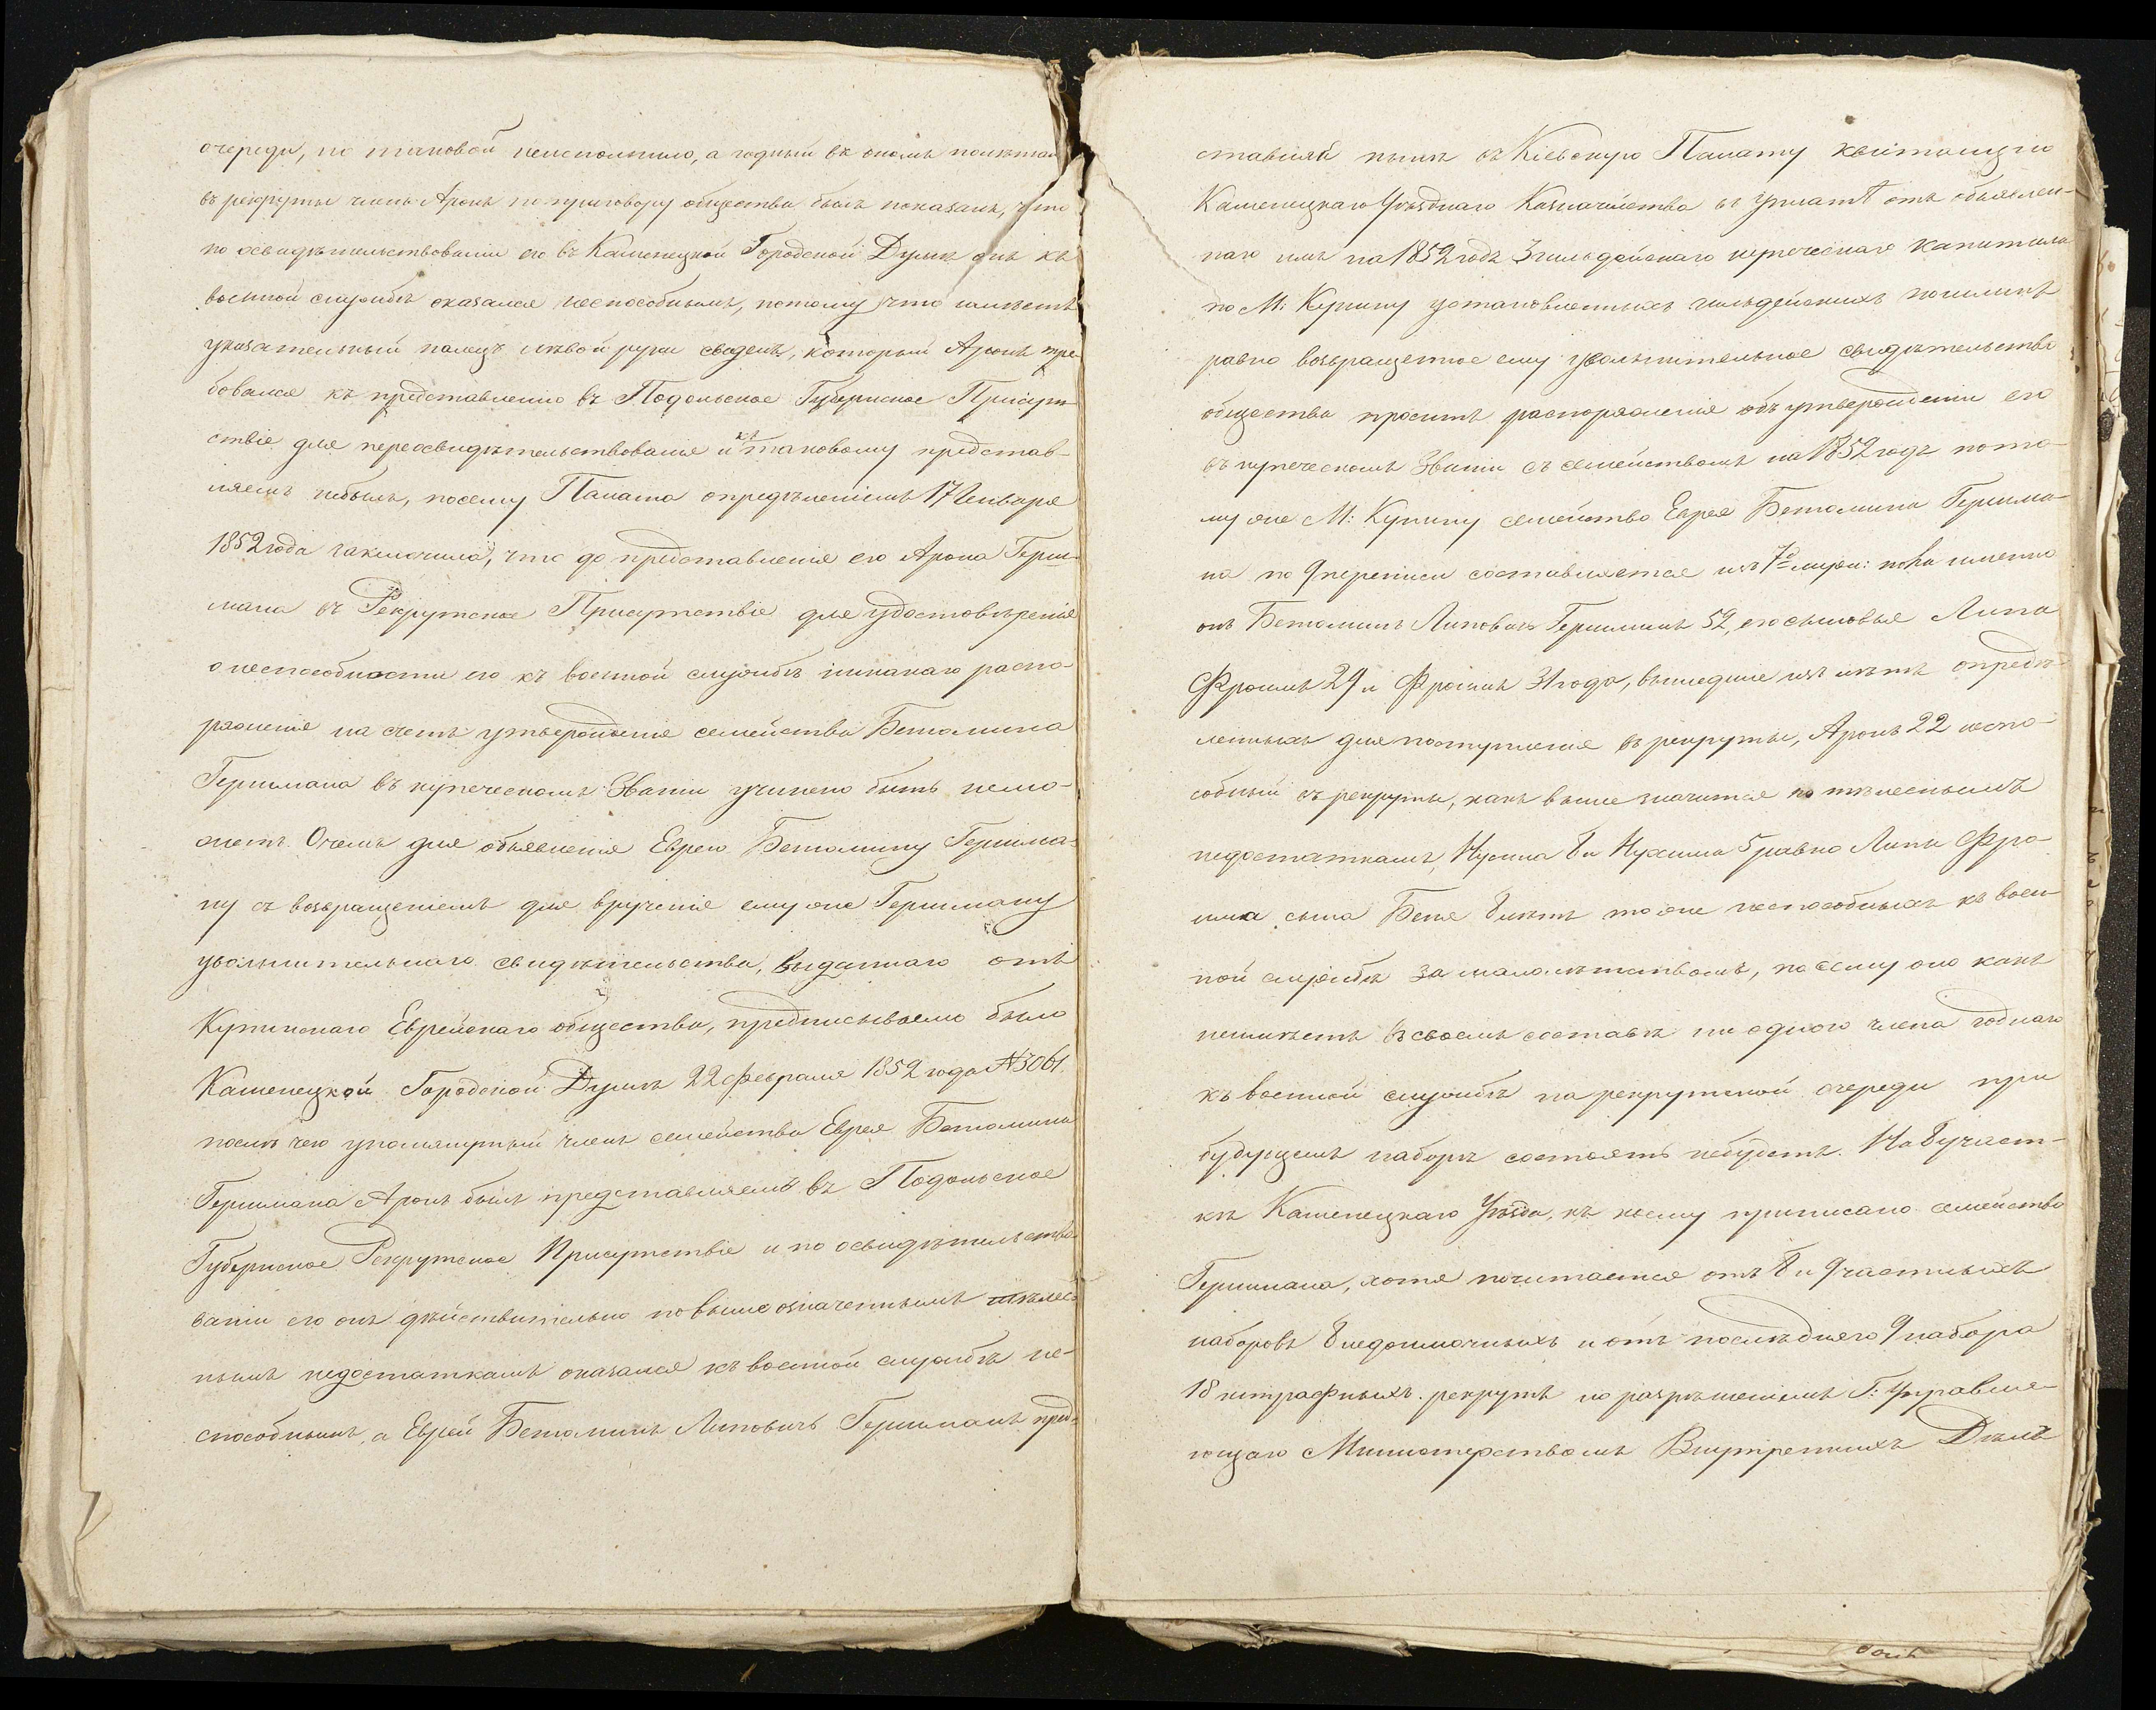 очереди, но таковой неисполнило, а годный въ ономъ полѣтам
въ рекруты членъ Аронъ по приговору общества былъ показанъ, что
по освидѣтельствованіи его въ Каменецкой Городской Думѣ онъ къ
военной службѣ оказался неспособнымъ, потому что имѣетъ
указательный палецъ лѣвой руки сведенъ, который Аронъ тре-
бовался къ представленію въ Подольское Губернское Присут-
ствіе для переосвидѣтельствованія и къ таковому представ-
ляемъ небылъ, посему Палата опредѣленіемъ 17 Генваря
1852 года заключила, что до представленія его Арона Герш-
мана въ Рекрутское Присутствіе для удостовѣренія
о неспособности его къ военной службѣ никакаго распо-
ряженія на счетъ утвержденія семейства Беніомина
Гершмана въ купеческомъ Званіи учинено быть немо-
жетъ. О чемъ для объявленія Еврею Беніомину Гершма-
ну съ возвращеніемъ для врученія ему же Гершману
увольнительнаго свидѣтельства, выданнаго отъ
Купинскаго Еврейскаго общества, предписываемо было
Каменецкой Городской Думѣ 22 февраля 1852 года №3061.
послѣ чего упомянутый членъ семейства Еврея Беніомина
Гершмана Аронъ былъ представляемъ въ Подольское
Губернское Рекрутское Присутствіе и по освидѣтельство-
ваніи его онъ дѣйствительно по вышеозначеннымъ тѣлес-
нымъ недостаткамъ оказался къ военной службѣ не-
способнымъ, а Еврей Беніоминъ Липовичъ Гершманъ пред-
ставляя нынѣ въ Кіевскую Палату квитанцію
Каменецкаго Уѣзднаго Казначейства въ уплатѣ отъ объявлен-
наго имъ на 1852 годъ 3 гильдейскаго купеческаго капитала
по М: Купину установленныхъ гильдейскихъ пошлинъ
равно возвращенное ему увольнительное свидѣтельство
общества проситъ распоряженія объ утвержденіи его
въ купеческомъ Званіи съ семействомъ на 1852 годъ по то-
му же М: Купину семейство Еврея Беніомина Гершма-
на по 9 переписи составляется изъ 7<sup>й</sup> муж: пола именно
онъ Беніоминъ Липовичъ Гершманъ 52, его сыновья Липа
Фроимъ 29 и Фроимъ 31 года, вышедшіе изъ лѣтъ опредѣ-
ленныхъ для поступленія въ рекруты, Аронъ 22 неспо-
собный въ рекруты, какъ выше значится по тѣлеснымъ
недостаткамъ, Нусина 8 и Нухима 5 равно Липы Фро-
има сына Беня 8 лѣтъ тоже неспособныхъ къ воен-
ной службѣ за малолѣтствомъ, посему оно какъ
неимѣетъ въ своемъ составѣ ни одного члена годнаго
къ военной службѣ на рекрутской очереди при
будущемъ наборѣ состоять небудетъ. На 8 участ-
кѣ Каменецкаго Уѣзда, къ коему приписано семейство
Гершмана, хотя почитается отъ 8 и 9 частныхъ
наборовъ 8 недоимочныхъ и отъ послѣдняго 9 набора
18 штрафныхъ рекрутъ но разрѣшеніемъ Г: Управля-
ющаго Министерствомъ Внутреннихъ Дѣлъ